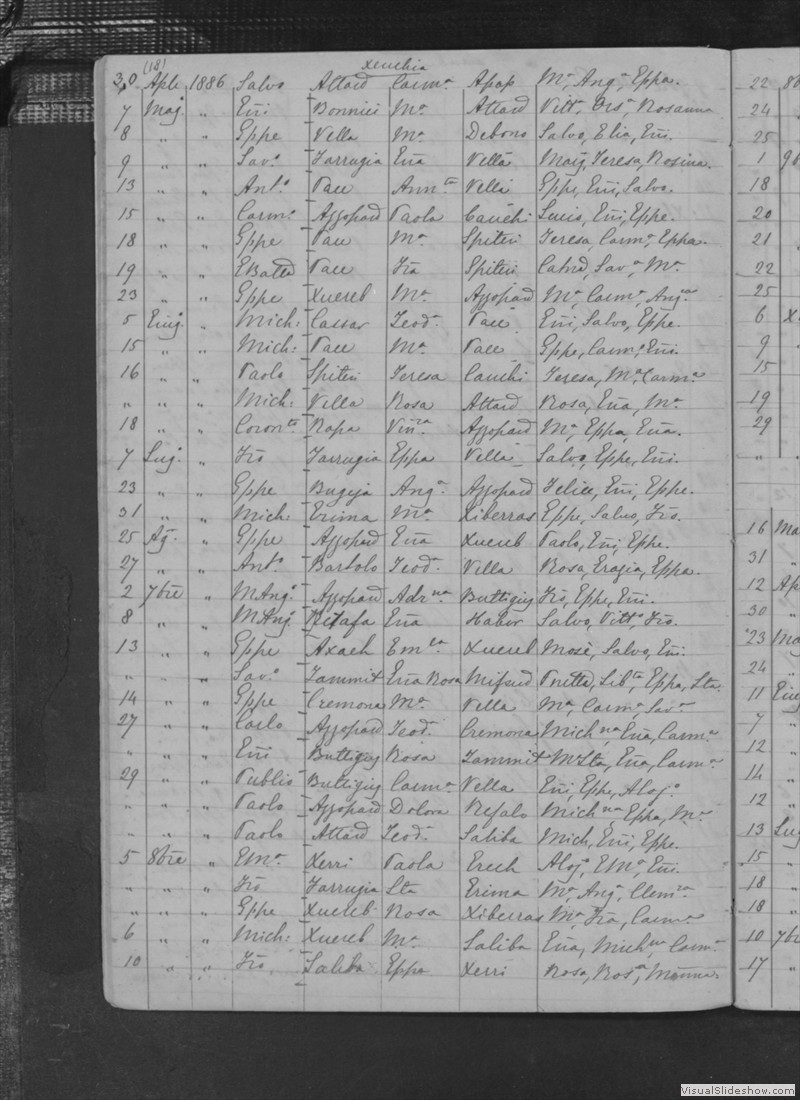 (18) Xeuchia
30 Aple 1886 Salvo Attard Carma Apap Ma, Anga, Eppa.
7 Maj. " Eñi Bonnici Ma Attard Vitta, Orsa, Rosanna
8 " " Gppe Vella Ma Debono Salvo, Elia, Eñi.
9 " " Savo Farrugia Eña Vella Teresa, Rosina.
13 " " Anto Pace Annta Vella Gppe, Eñi, Salvo.
15 " " Carmo Azzopard Paola Cauchi Luis, Eñi, Eppe.
18 " " Gppe Pace Ma Spiteri Teresa, Carma, Eppa.
19 " " GBatta Pace Fra Spiteri Catna, Sava, Ma.
23 " " Gppe Xuereb Ma Azzopard Ma, Carma, Anga
5 Giug. " Mich: Cassar Teoda Pace Eñi, Salvo, Eppe.
15 " " Mich: Pace Ma Pace Gppe, Carmo, Eñi.
16 " " Paolo Spiteri Teresa Cauchi Teresa, Ma, Carma
" " " Mich: Vella Rosa Attard Rosa, Eña, Ma.
18 " " Coronto Rapa Vinra Azzopard Ma, Eppa, Eña.
7 Lug. " Fro Farrugia Eppa Vella Salvo, Eppe, Eñi.
23 " " Gppe Bugeja Anga Azzopard Felice, Eñi, Eppe.
31 " " Mich: Erima Ma Xiberras Eppe, Salvo, Fro.
25 Ag. " Gppe Azzopard Eña Xuereb Paolo, Eñi, Eppe.
27 " " Anto Bartolo Teoda Vella Rosa, Grazia, Eppa.
2 7bre " MAng. Azzopard Adrna Buttigieg Fro, Eppe, Eñi.
8 " " MAng. Refafa Eña Haber Salvo, Vitto, Fro.
13 " " Gppe Axach Emla Xuereb Mosè, Salvo, Eñi.
" " " Savo Zammit Eña Rosa Mifsud Libta, Eppa, Sta.
14 " " Gppe Cremona Ma Vella Ma, Carma, Sava
27 " " Carlo Azzopard Teoda Cremona Michna, Eña, Carma
" " " Eñi Buttigieg Rosa Zammit Ma Sta, Eña, Carma
29 " " Publio Buttigieg Carma Vella Eñi, Eppe, Aloj.
" " " Paolo Azzopard Dolora Refalo Michna, Eppa, Ma
" " " Paolo Attard Teoda Saliba Mich, Eñi, Eppe.
5 8bre " EMa Xerri Paola Grech Aloj, EMa, Eñi.
" " " Fro Farrugia Sta Erima Ma, Anga, Clemza
" " " Gppe Xuereb Rosa Xiberras Ma, Fra, Carma
6 " " Mich: Xuereb Ma Saliba Eña, Michna, Carma
10 " " Fro Saliba Eppa Xerri Rosa, Rosa,
22 8b
24 "
25
1 9b
18
20
21
22
25
6 X
9
15
19
29
" "
16 Ma
31 "
12 Ap
30 "
23 Mag
24 "
11 Giug
7 "
12 "
14 "
12 "
13 Lug
15 "
18 "
18 "
10 7bre
17 "
VisualSlideshow.com